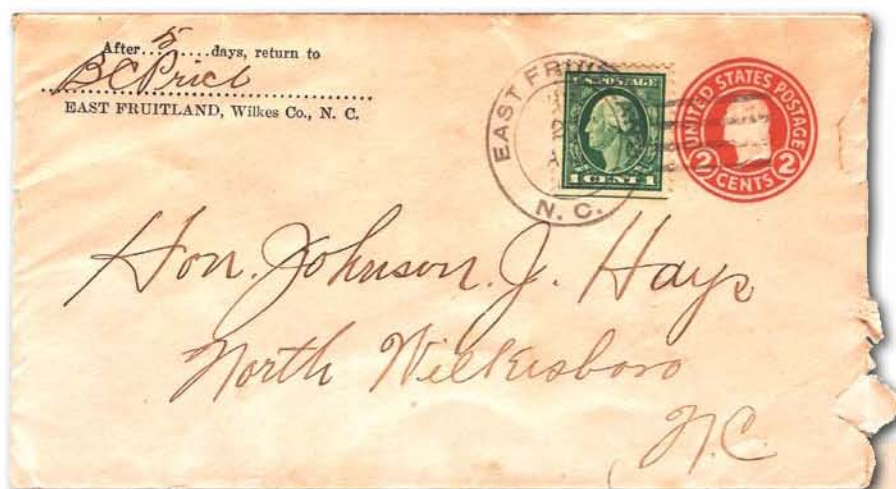 After 5 days, return to
B C Price
EAST FRUITLAND, Wilkes Co., N. C.
EAST
N. C.
U.S. POSTAGE
1 CENT 1
UNITED STATES POSTAGE
2 CENTS 2
Hon. Johnson J. Hays
North Wilkesboro
N.C.